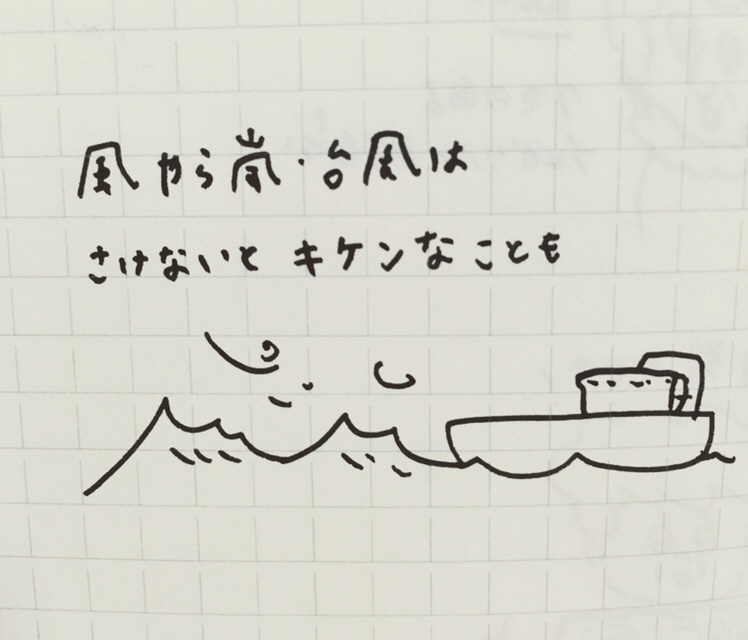 風やら嵐・台風は
さけないと キケンなことも